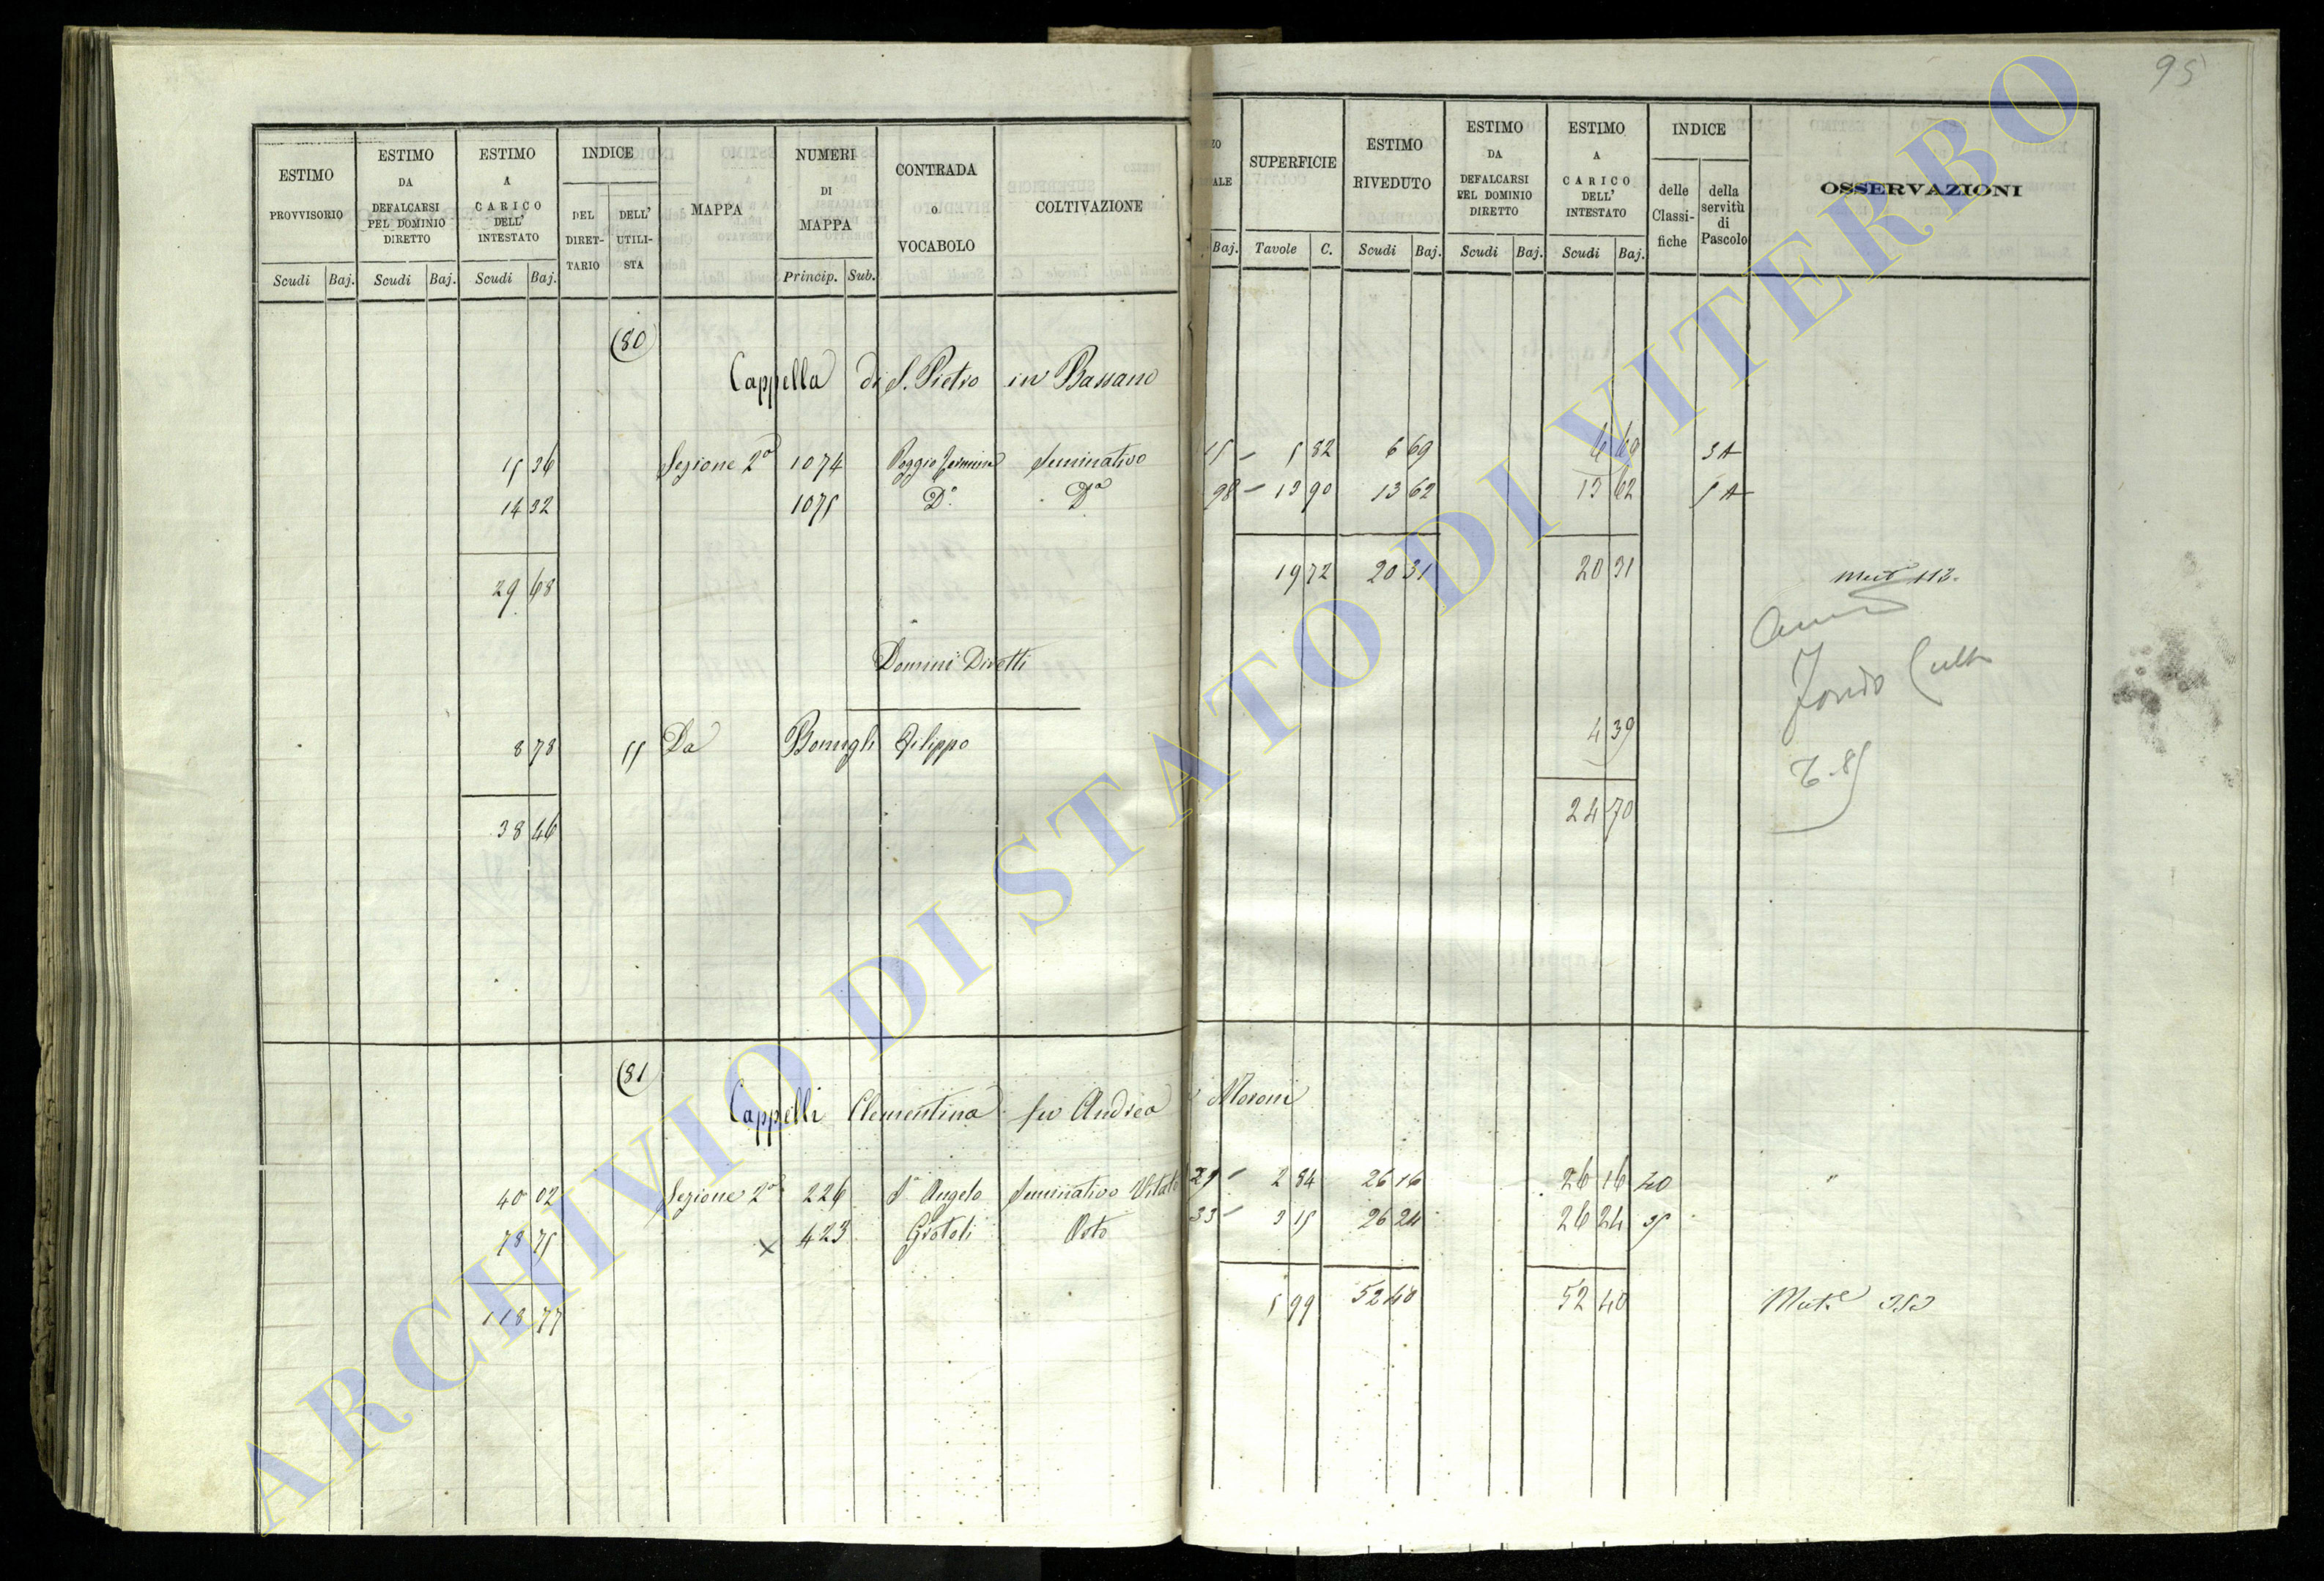 95
ESTIMO PROVVISORIO
ESTIMO DA DEFALCARSI PEL DOMINIO DIRETTO
ESTIMO A CARICO DELL' INTESTATO
INDICE
DEL DIRET- TARIO
DELL' UTILI- STA
MAPPA
NUMERI DI MAPPA
CONTRADA o VOCABOLO
COLTIVAZIONE
ALE
SUPERFICIE
ESTIMO RIVEDUTO
ESTIMO DA DEFALCARSI PEL DOMINIO DIRETTO
ESTIMO A CARICO DELL' INTESTATO
INDICE
delle Classi- fiche
della servitù di Pascolo
OSSERVAZIONI
Scudi Baj. Scudi Baj. Scudi Baj. Princip. Sub.
Baj. Tavole C. Scudi Baj. Scudi Baj. Scudi Baj.
(80)
Cappella di S. Pietro in Bassano
15 36 Sezione 2a 1074 Poggio Seminativo 15 - 5 82 6 69 6 69 3 A
14 32 1075 Do Do 98 - 13 90 13 62 13 62 5 A
29 68 19 72 20 31 20 31 Mut 113.
Domini Diretti
Fondo Culto
8 78 55 Da Filippo 4 39
38 46 24 70
(81)
Cappelli Clementina fu Andrea Moroni
40 02 Sezione 2a 226 S. Angelo Seminativo Vitato 29 - 2 84 26 16 26 16 40
78 75 x 423 Grotoli Orto 33 - 3 15 26 24 26 24 35
118 77 5 99 52 40 52 40 Mut.e 353
ARCHIVIO DI STATO DI VITERBO